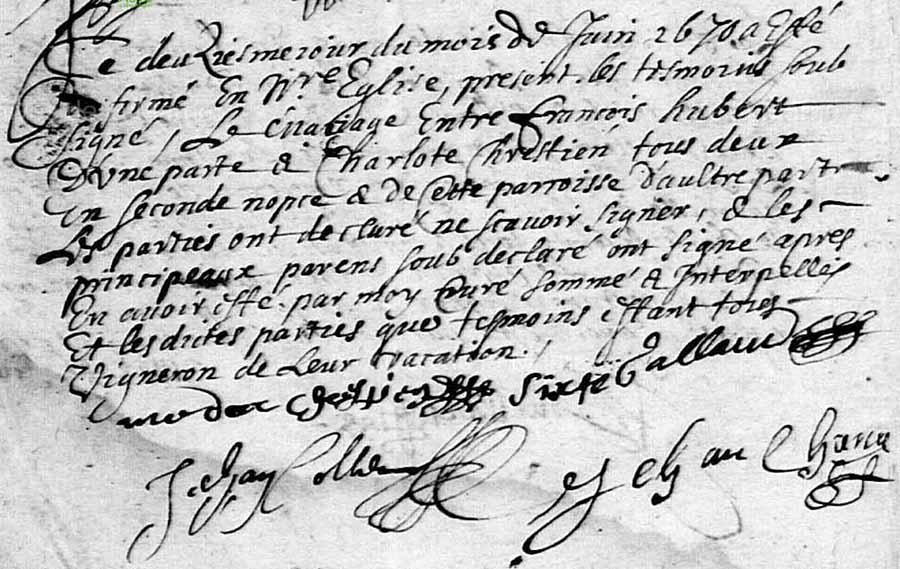 Le deuxiesme jour du mois de Juin 1670 a esté
firmé En Nre Eglise, present les tesmoins soub
signé, Le mariage Entre François hubert
D'une parte & Charlote Chrestien tous deux
En seconde nopce & de Cette parroisse d'aultre part
Les parties ont declaré ne scavoir signer, & les
principeaux parens soub declaré ont signé apres
En avoir esté par moy Curé sommé & Interpellés
Et les dictes parties que tesmoins estant tous
Vigneron de Leur vacation.
medar Sixte Gallaud
Jehan
Jehan